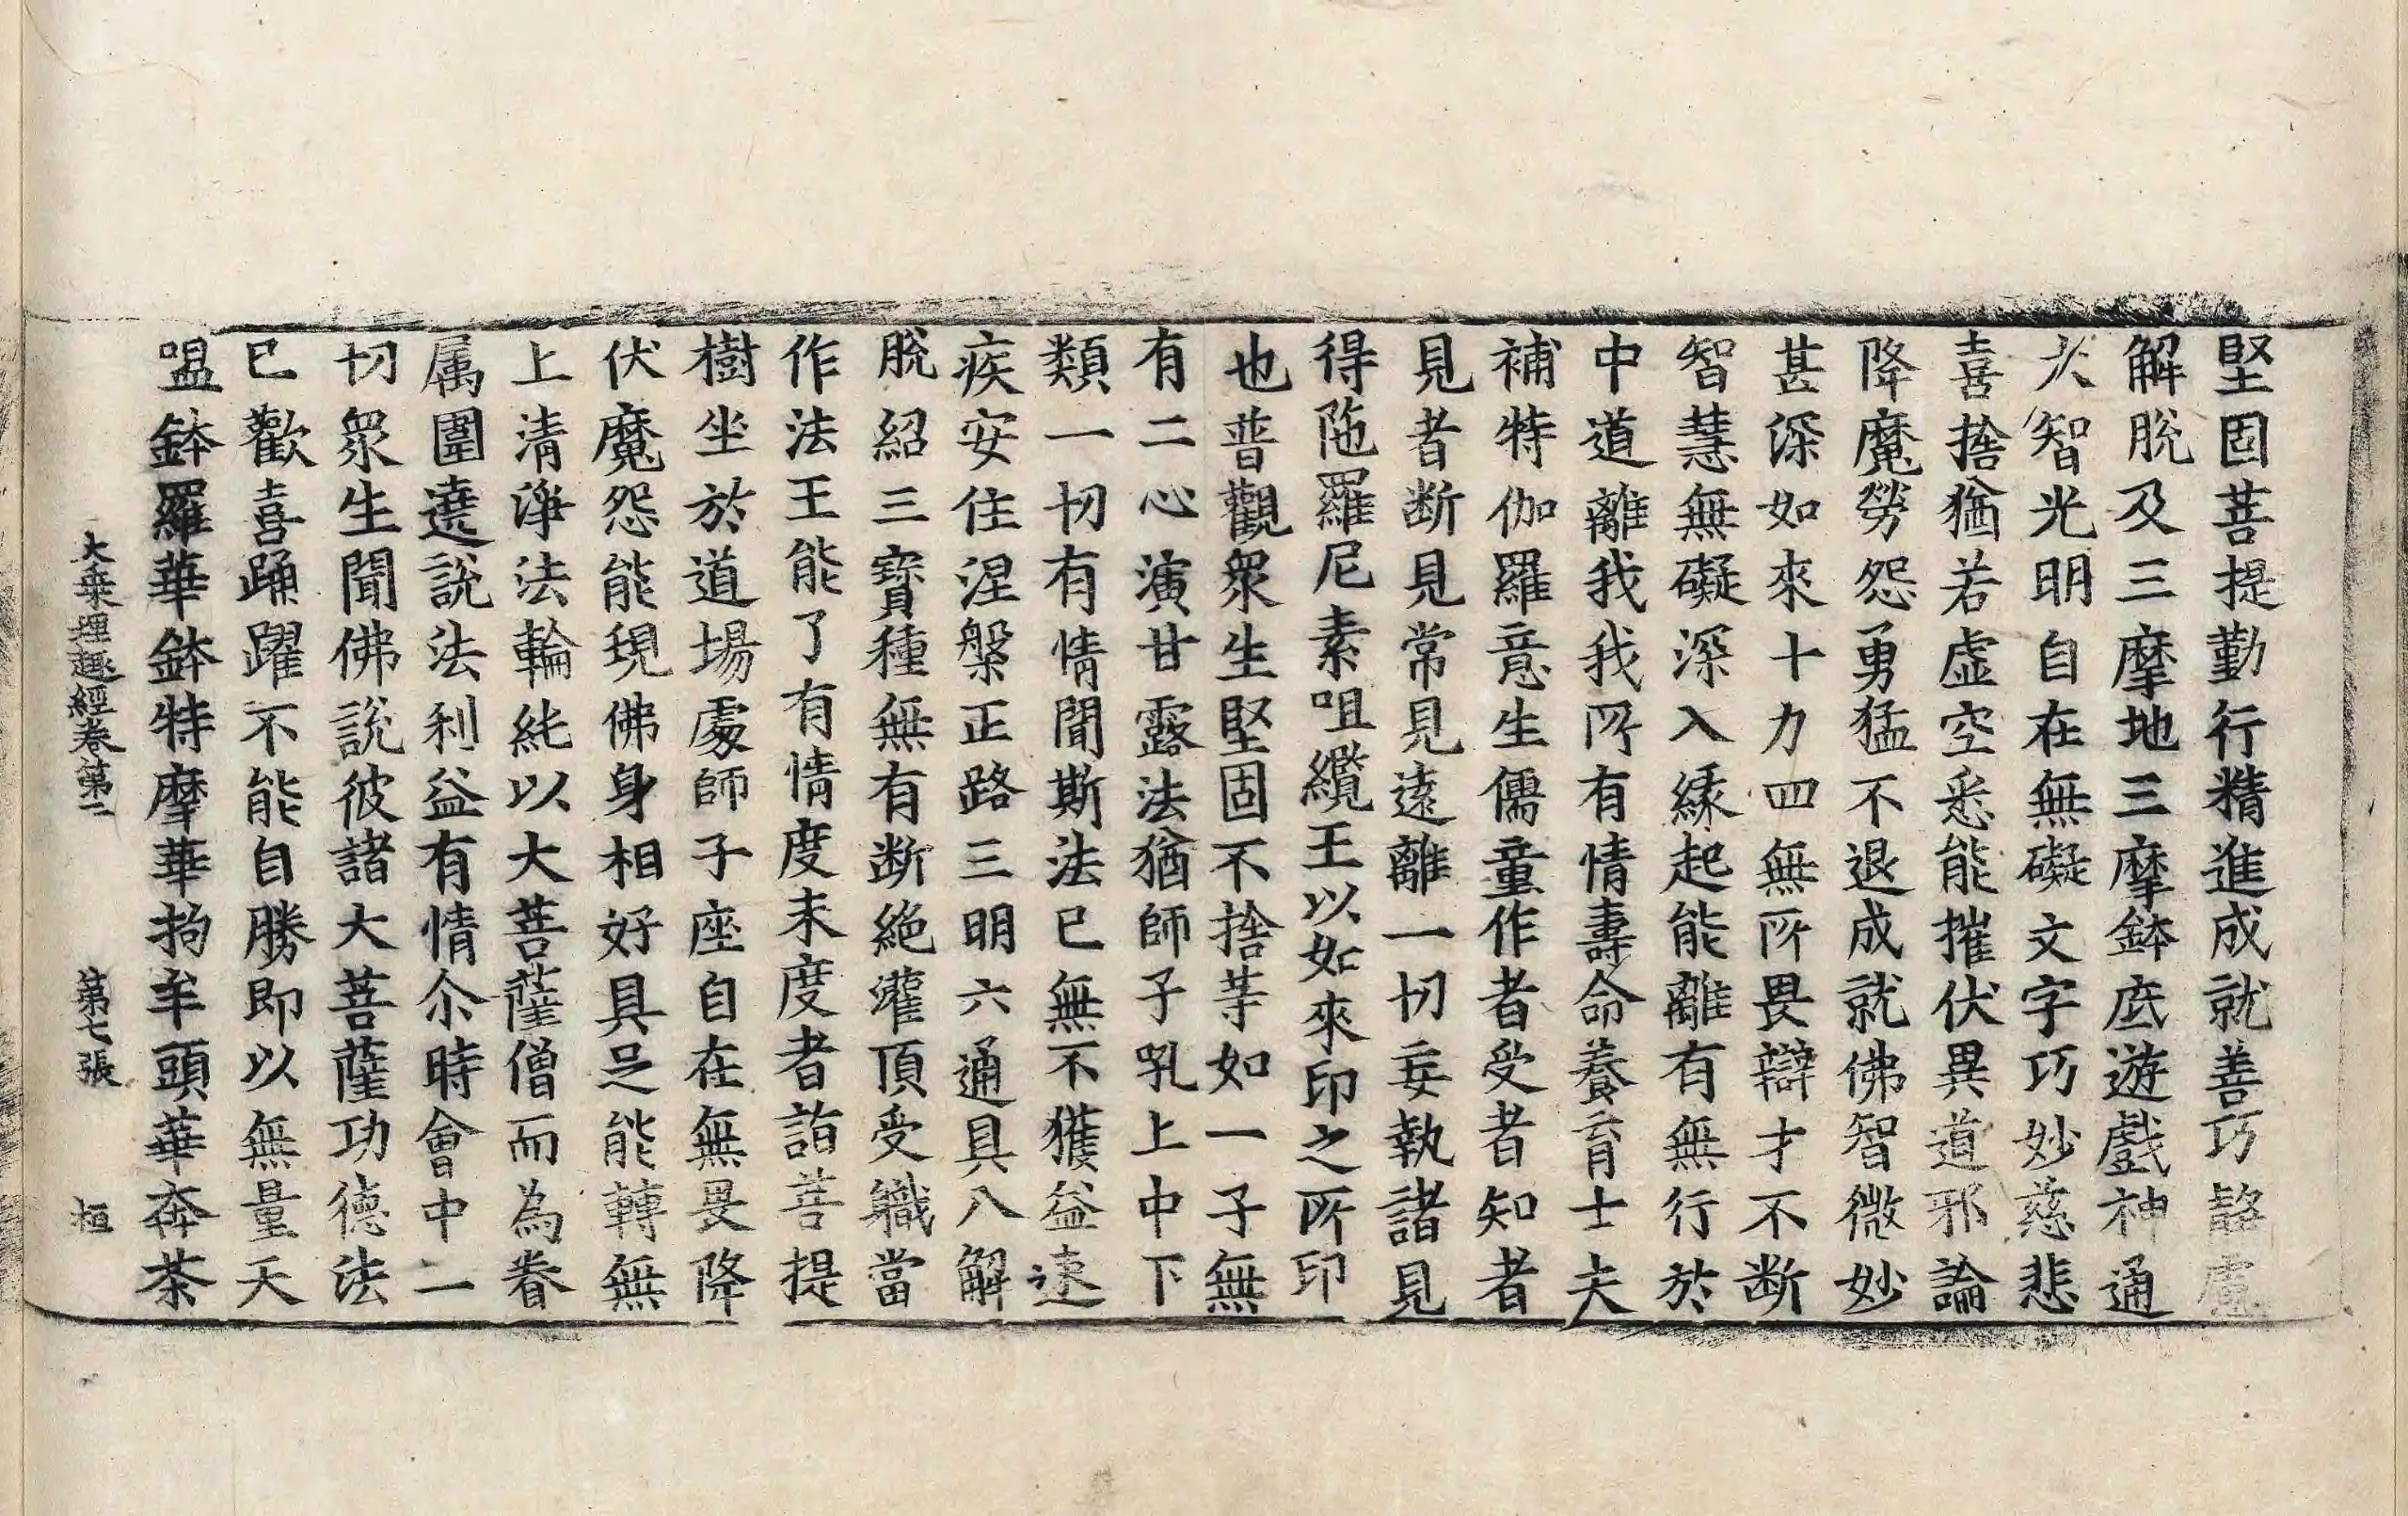 堅固菩提勤行精進成就善巧䛩慮
解脫及三摩地三摩鉢底遊戲神通
大智光明自在無礙文字巧妙慈悲
喜捨猶若虛空悉能摧伏異道邪論
降魔勞怨勇猛不退成就佛智微妙
甚深如來十力四無所畏辯才不断
智慧無礙深入緣起能離有無行於
中道離我我所有情壽命養育士夫
補特伽羅意生儒童作者受者知者
見者断見常見遠離一切妄執諸見
得陁羅尼素咀纜王以如來印之所印
也普觀眾生堅固不捨等如一子無
有二心演甘露法猶師子吼上中下
類一切有情聞斯法已無不獲益速
疾安住涅槃正路三明六通具八解
脫紹三寶種無有断絕灌頂受職當
作法王能了有情度未度者詣菩提
樹坐於道場處師子座自在無畏降
伏魔怨能現佛身相好具足能轉無
上清淨法輪純以大菩薩僧而為眷
属圍遶說法利益有情尒時會中一
切眾生聞佛說彼諸大菩薩功德法
已歡喜踊躍不能自勝即以無量天
嗢鉢羅華鉢特摩華拘牟頭華奔茶
大乗理趣經卷第二　第七張　桓